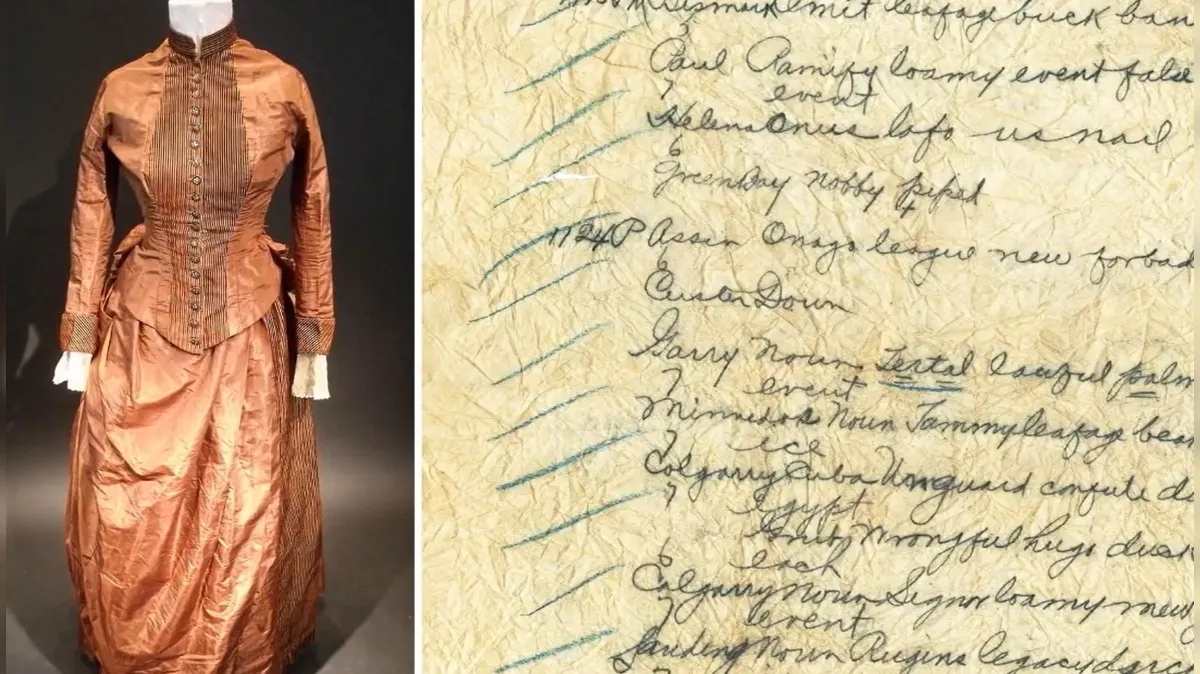 Bismark Omit leafage buck ban
Paul Ramify loamy event false
event
Helena Onus lofo us nail
Green Bay nobby peped
1124 P Assin Onago league new forbade
Custer Down
Garry Noun Tertal lawful palm
event
Minnedos Noun Jammy leafage bear
ice
Calgarry Cuba Unguard confute d
Egypt
Wrongful hugo duck
each
Calgarry Noun Signor loamy
event
Landing Noun Rugins legacy